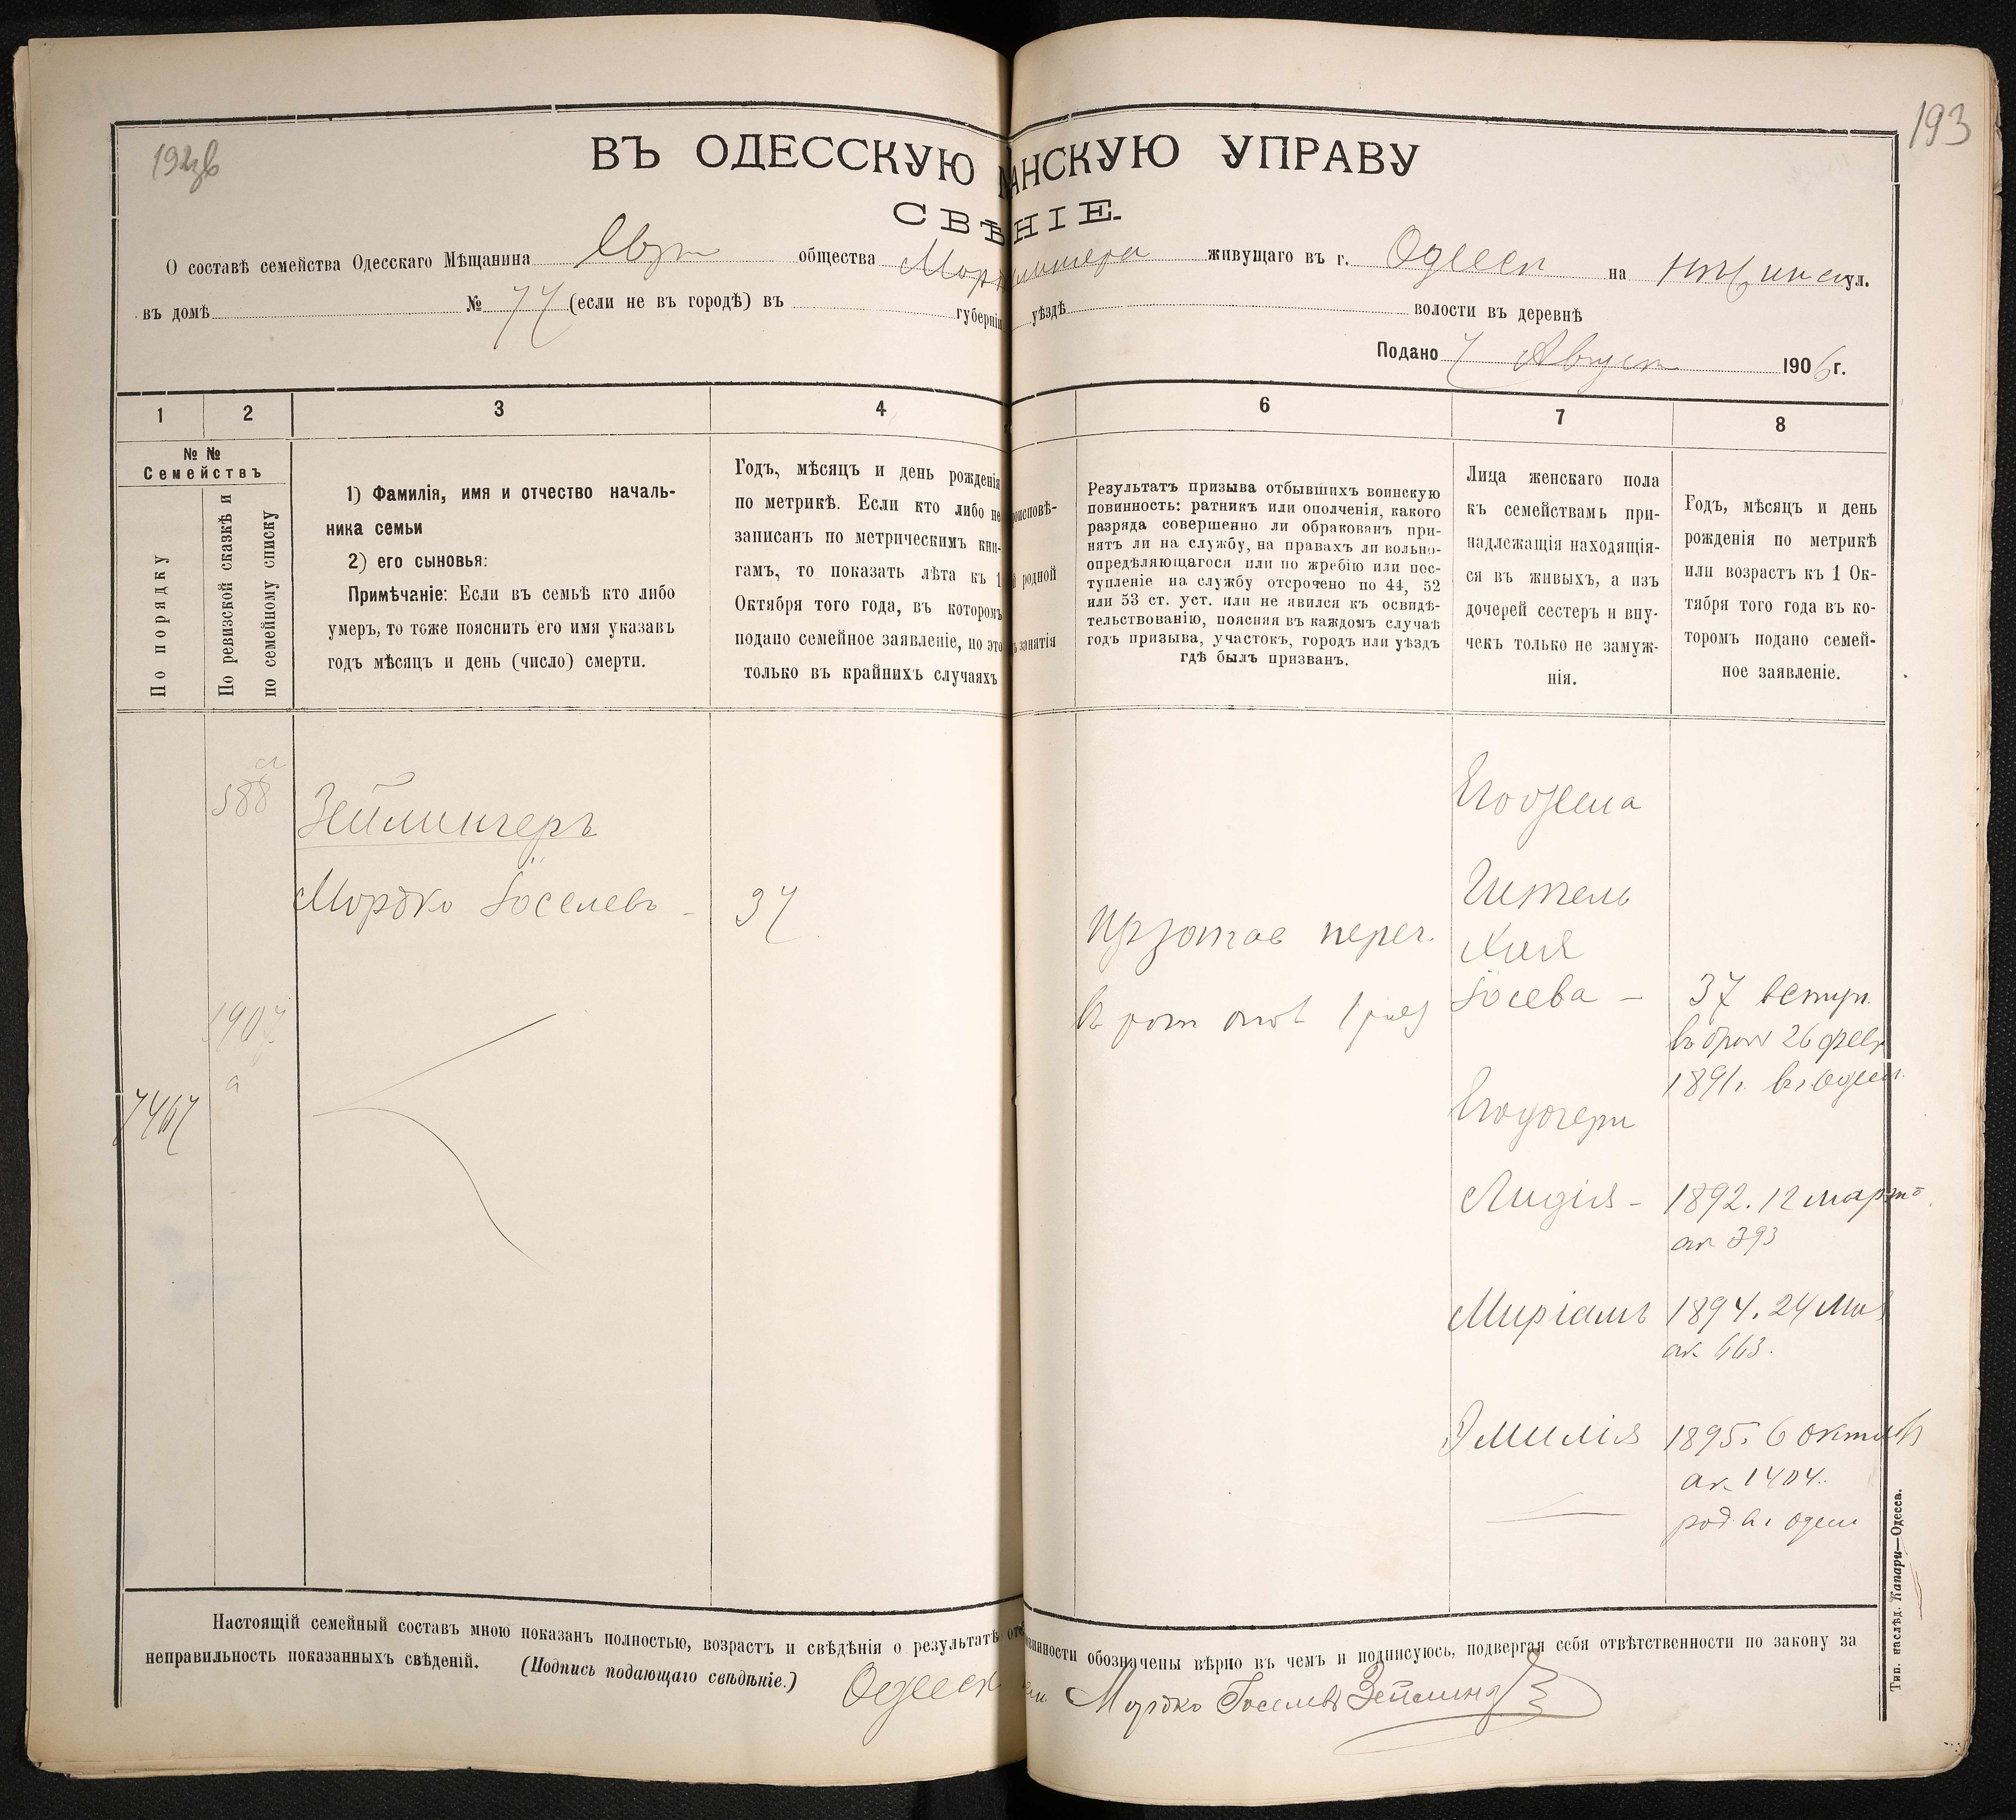 193
ВЪ ОДЕССКУЮ АНСКУЮ УПРАВУ
СВѢ НІЕ.
О составѣ семейства Одесскаго Мѣщанина общества живущаго въ г. Одессѣ на ул.
въ домѣ № 77 (если не въ городѣ) въ губерніи уѣздѣ волости въ деревнѣ
Подано 7 Август 1906 г.
1 2 3 4 6 7 8
№ №
Семействъ
По порядку
По ревизской сказкѣ и
по семейному списку
1) Фамилія, имя и отчество началь-
ника семьи
2) его сыновья:
Примѣчаніе: Если въ семьѣ кто либо
умеръ, то тоже пояснить его имя указавъ
годъ мѣсяцъ и день (число) смерти.
Годъ, мѣсяцъ и день рожденія
по метрикѣ. Если кто либо не
записанъ по метрическимъ кни-
гамъ, то показать лѣта къ 1
Октября того года, въ которомъ
подано семейное заявленіе, но это
только въ крайнихъ случаяхъ
роисповѣ-
й родной
ъ занятія
Результатъ призыва отбывшихъ воинскую
повинность: ратникъ или ополченія, какого
разряда совершенно ли обракованъ при-
нятъ ли на службу, на правахъ ли вольно-
опредѣляющагося или по жребію или пос-
тупленіе на службу отсрочено по 44, 52
или 53 ст. уст. или не явился къ освидѣ-
тельствованію, поясняя въ каждомъ случаѣ
годъ призыва, участокъ, городъ или уѣздъ
гдѣ былъ призванъ.
Лица женскаго пола
къ семействамъ при-
надлежащія находящія-
ся въ живыхъ, а изъ
дочерей сестеръ и вну-
чекъ только не замуж-
нія.
Годъ, мѣсяцъ и день
рожденія по метрикѣ
или возрастъ къ 1 Ок-
тября того года въ ко-
торомъ подано семей-
ное заявленіе.
588 а
Зейлингеръ
Мордко Іоселевъ - 37
1907
а
7467
перег.
Его жена
Гитель
Хая
Іосева - 37 вступ.
въ брак 26 февр
1891 г. въ Одесс.
Его дочери
Лидія - 1892. 12 марта
ак 393
Миріамъ 1894. 24 Мая
ак 663.
Эмилія 1895. 6 октяб
ак 1404.
род. въ Одесс
Настоящій семейный составъ мною показанъ полностью, возрастъ и свѣдѣнія о результатѣ от винности обозначены вѣрно въ чемъ и подписуюсь, подвергая себя отвѣтственности по закону за
неправильность показанныхъ свѣденій. (Подпись подающаго свѣдѣніе.) Одесск Мордко Іоселевъ Зейлингер
Тип. наслѣд. Капари—Одесса.